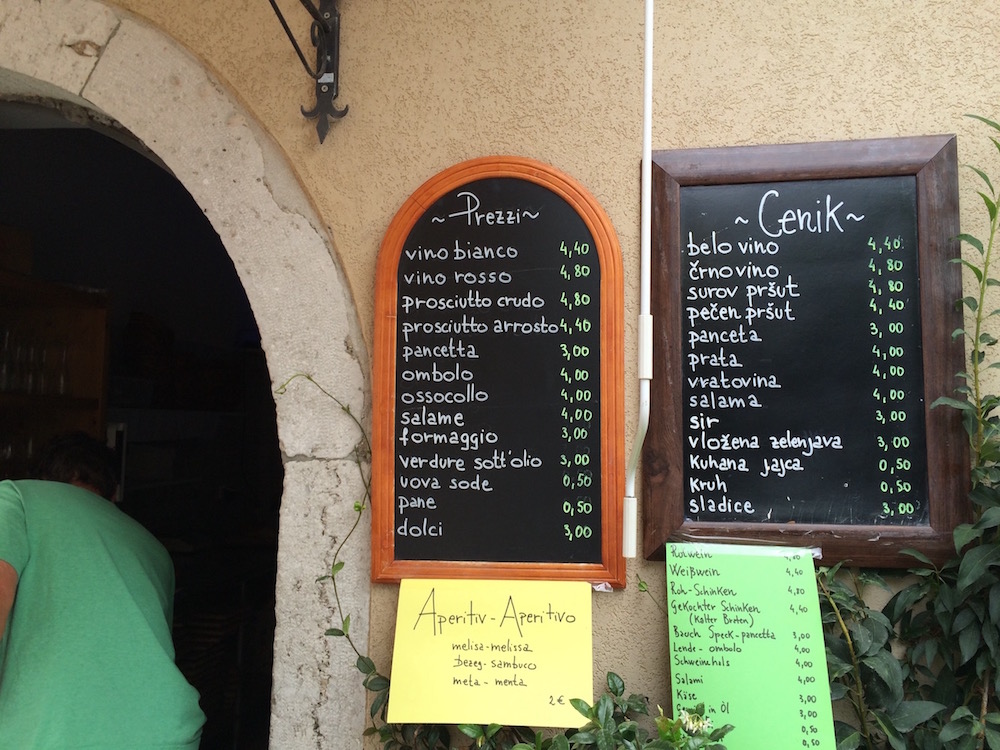 ~ Prezzi ~
vino bianco 4,40
vino rosso 4,80
prosciutto crudo 4,80
prosciutto arrosto 4,40
pancetta 3,00
ombolo 4,00
ossocollo 4,00
salame 4,00
formaggio 3,00
verdure sott'olio 3,00
uova sode 0,50
pane 0,50
dolci 3,00
Aperitiv - Aperitivo
melisa - melissa
bezeg - sambuco
meta - menta
2 €
~ Cenik ~
belo vino 4,40
črno vino 4,80
surov pršut 4,80
pečen pršut 4,40
panceta 3,00
prata 4,00
vratovina 4,00
salama 4,00
sir 3,00
vložena zelenjava 3,00
kuhana jajca 0,50
kruh 0,50
sladice 3,00
Rotwein
Weißwein 4,40
Roh-Schinken 4,80
Gekochter Schinken 4,40
(Kalter Braten)
Bauch Speck - pancetta 3,00
Lende - ombolo 4,00
Schweinehals 4,00
Salami 4,00
Käse 3,00
in Öl 3,00
0,50
0,50